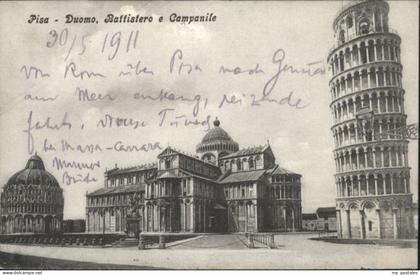 Pisa - Duomo, Battistero e Campanile
30/5 1911
von Rom über Pisa nach Genua
am Meer entlang, reizende
Fahrt,
bei Massa-Carrara
Marmor
Brüche